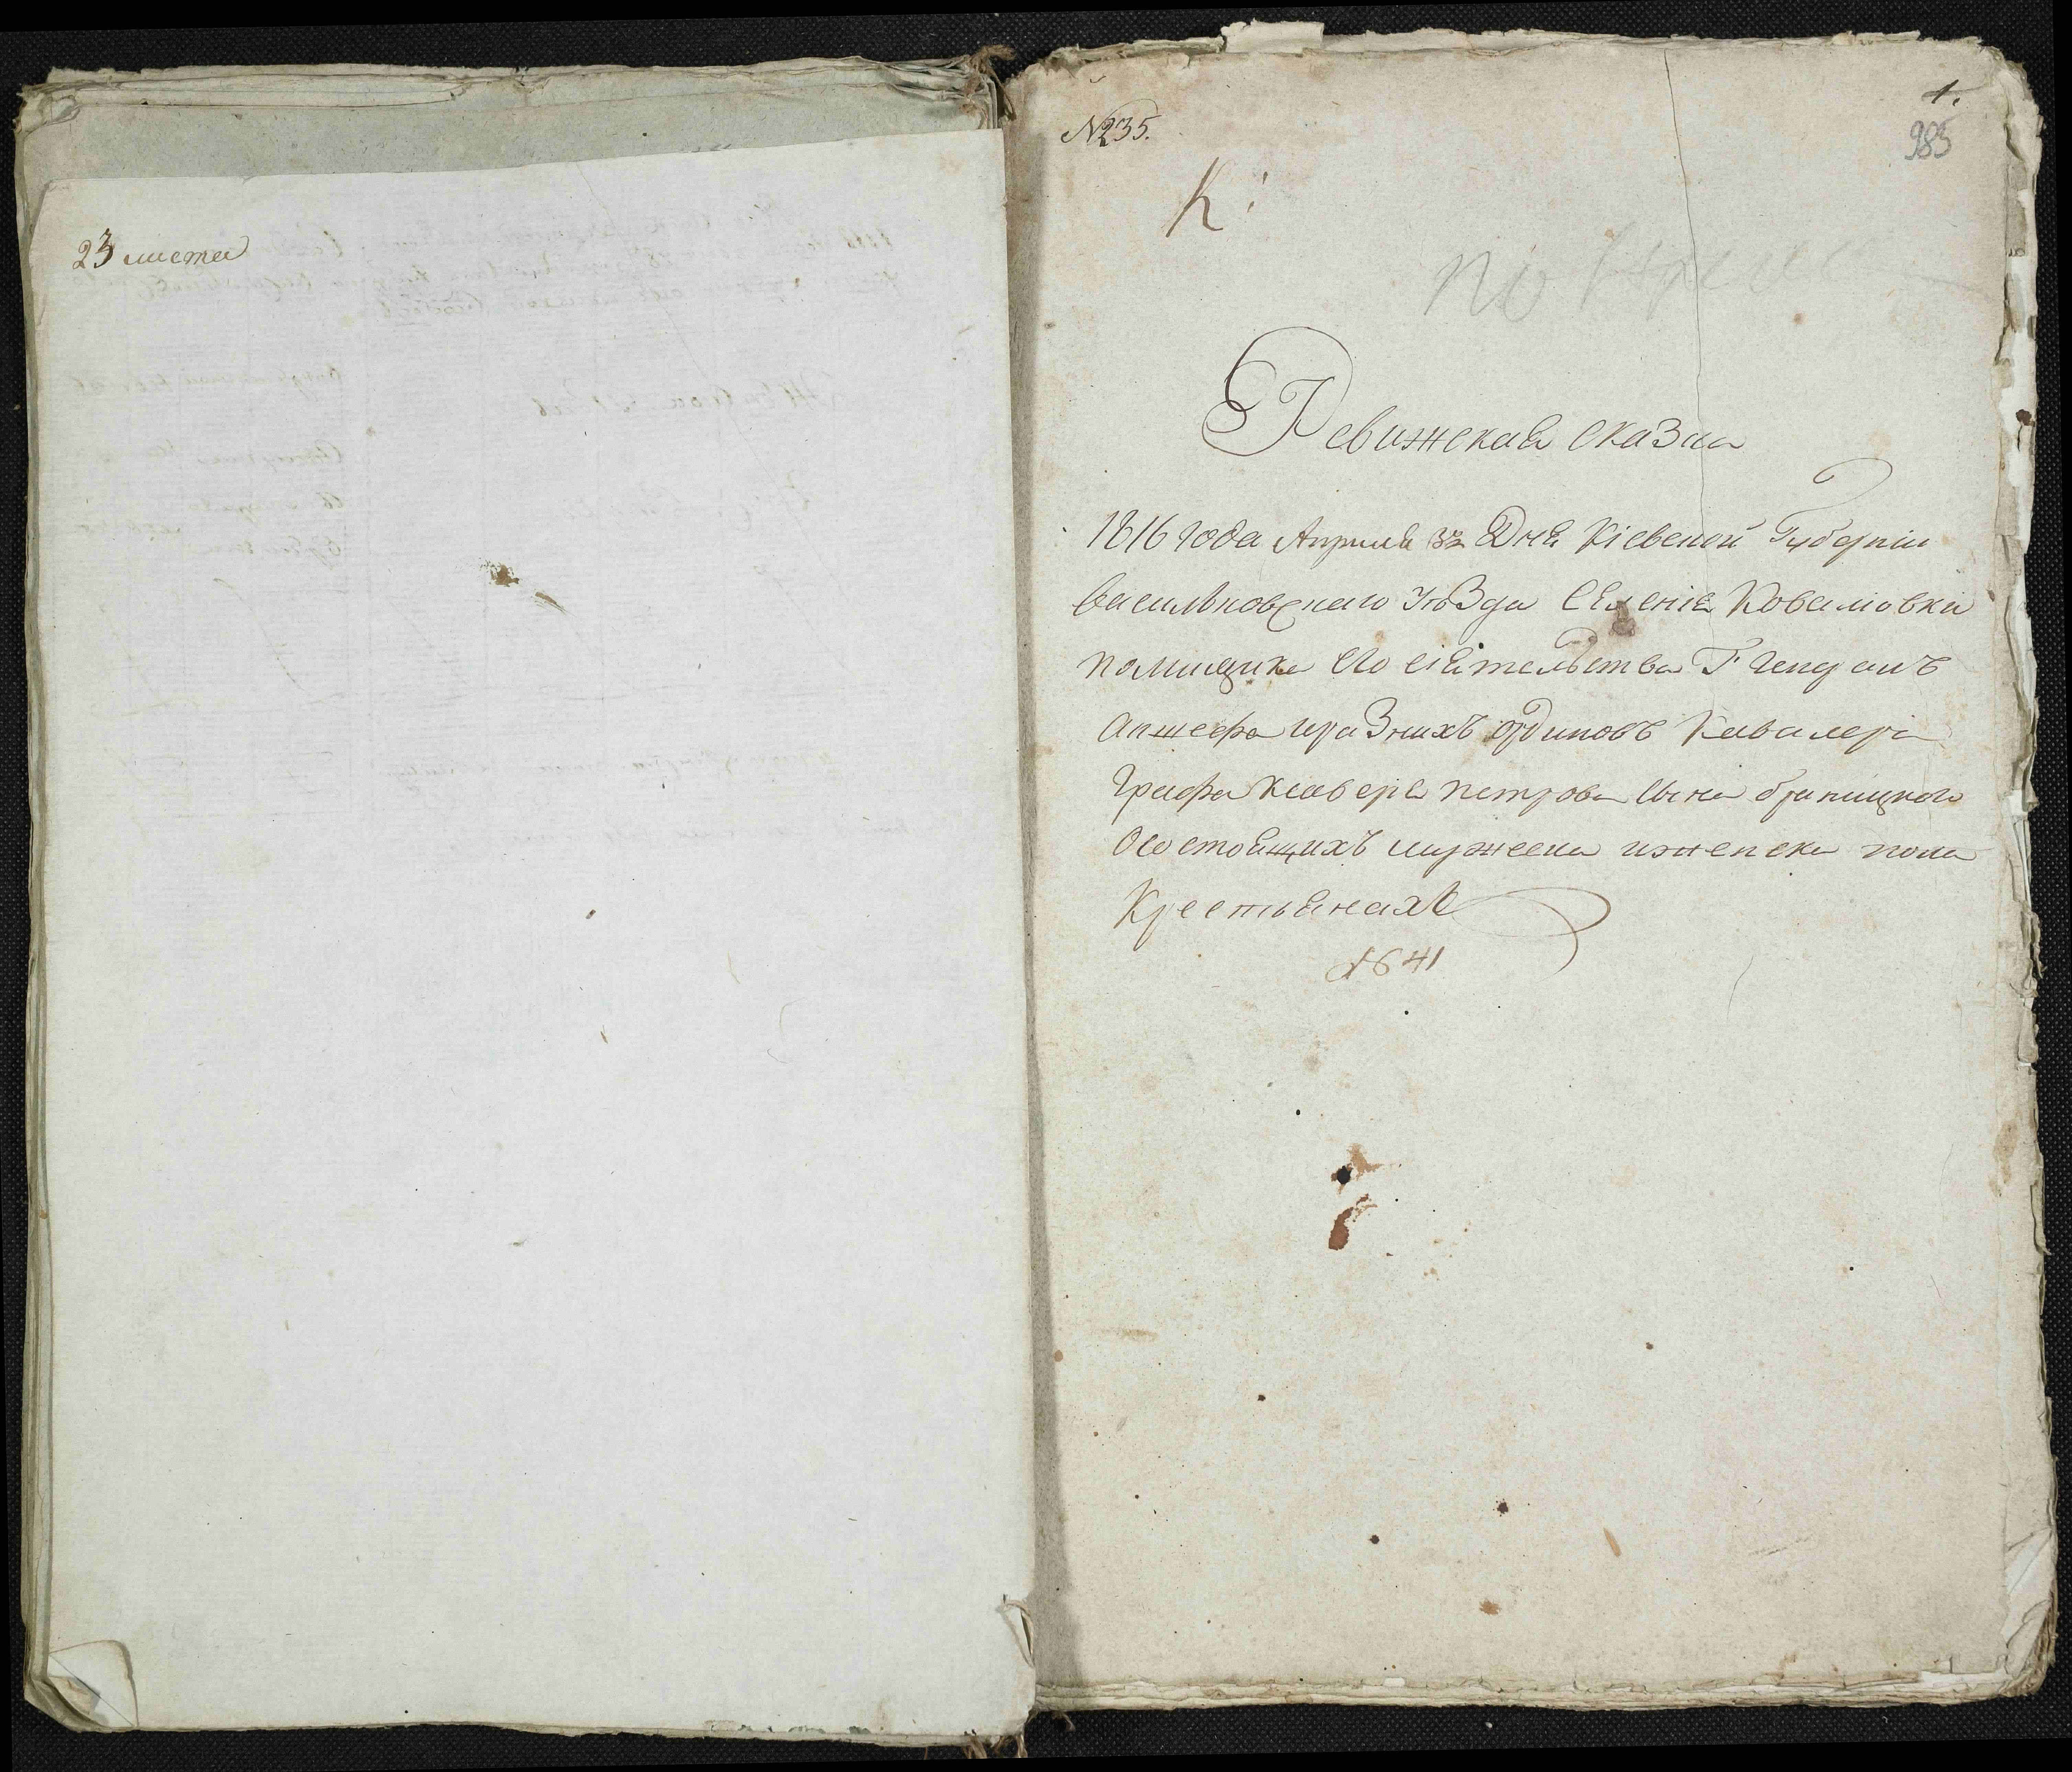 23 листа
№235.
1.
985
К:
по
Ревижская сказка
1816 года Апреля Дня Кіевской Губерніи
васильковскаго уѣзда селенія Ковалювки
помищика его сіятельства Г Генералъ
аншефа иразныхъ ординовъ Кавалера
Графа Ксаверія петрова сына браницкого
Осостоящихъ мужеска иженска пола
Крестьянахъ
1641